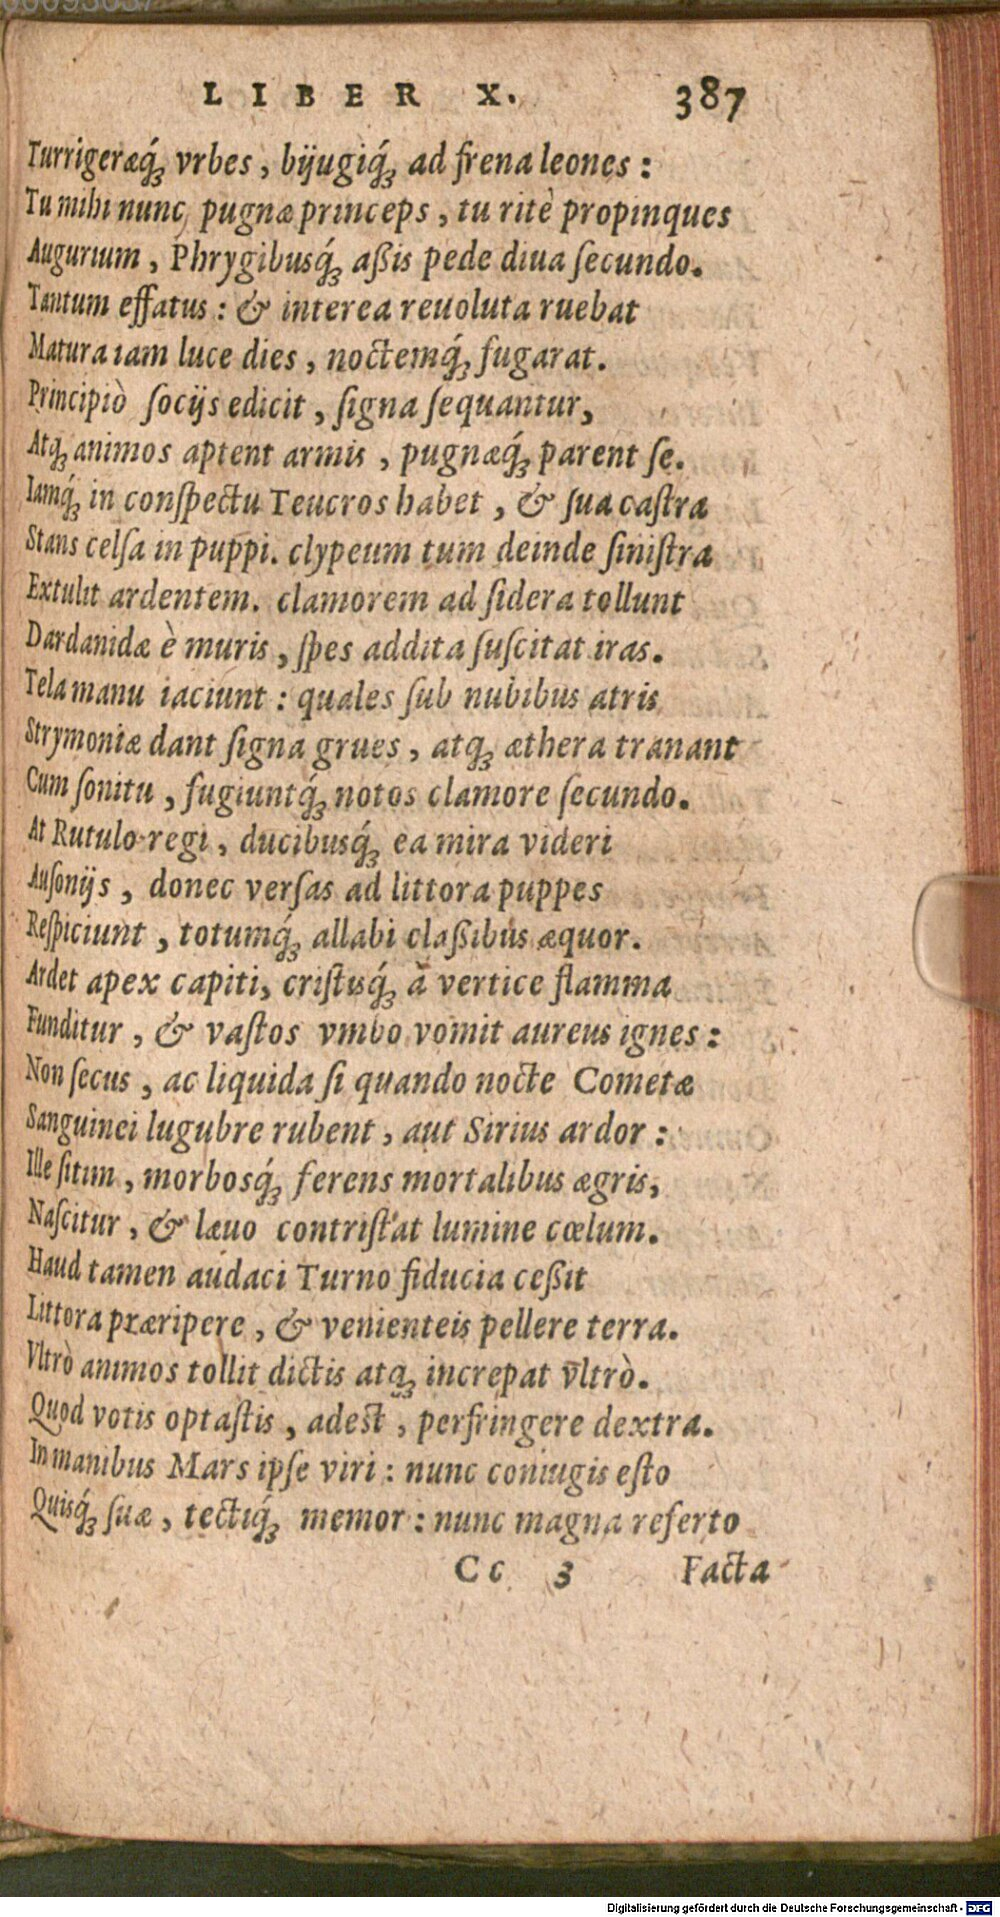 LIBER X. 387
Turrigeræq́; vrbes, bijugiq́; ad frena leones:
Tu mihi nunc pugnæ princeps, tu ritè propinques
Augurium, Phrygibusq́; aßis pede diua ſecundo.
Tantum effatus: & interea reuoluta ruebat
Matura iam luce dies, noctemq́; fugarat.
Principiò ſocijs edicit, ſigna ſequantur,
Atq; animos aptent armis, pugnæq́; parent ſe.
Iamq́; in conſpectu Teucros habet, & ſua caſtra
Stans celſa in puppi. clypeum tum deinde ſiniſtra
Extulit ardentem. clamorem ad ſidera tollunt
Dardanidæ è muris, ſpes addita ſuſcitat iras.
Tela manu iaciunt: quales ſub nubibus atris
Strymoniæ dant ſigna grues, atq; æthera tranant
Cum ſonitu, fugiuntq́; notos clamore ſecundo.
At Rutulo regi, ducibusq́; ea mira videri
Auſonijs, donec verſas ad littora puppes
Reſpiciunt, totumq́; allabi claßibus æquor.
Ardet apex capiti, criſtisq́; à vertice flamma
Funditur, & vaſtos vmbo vomit aureus ignes:
Non ſecus, ac liquida ſi quando nocte Cometæ
Sanguinei lugubre rubent, aut Sirius ardor:
Ille ſitim, morbosq́; ferens mortalibus ægris,
Naſcitur, & læuo contriſtat lumine cœlum.
Haud tamen audaci Turno fiducia ceßit
Littora præripere, & venienteis pellere terra.
Vltrò animos tollit dictis atq; increpat vltrò.
Quod votis optaſtis, adeſt, perfringere dextra.
In manibus Mars ipſe viri: nunc coniugis eſto
Quisq́; ſuæ, tectiq́; memor: nunc magna referto
Cc 3 Facta
Digitalisierung gefördert durch die Deutsche Forschungsgemeinschaft - DFG